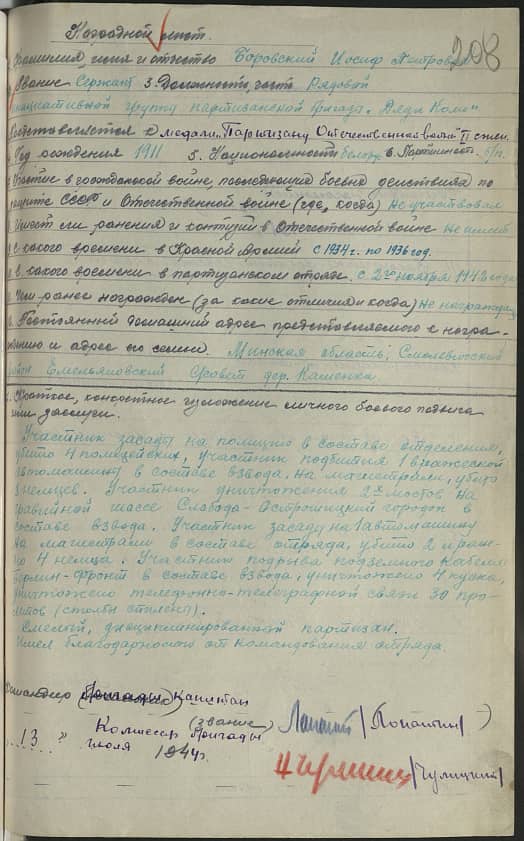 Наградной лист.
208
Фамилия, имя и отчество Боровский Иосиф Петрович
Звание Сержант 3. Должность, часть Рядовой
инициативной группы партизанской бригады „Дяди Коли"
Представляется к медали „Партизану Отечественной войны" II степ.
Год рождения 1911 5. Национальность белорус 6. Партийность б/п.
Участие в гражданской войне, последующих боевых действиях по
защите СССР и Отечественной войне (где, когда) Не участвовал
Имеет ли ранения и контузии в Отечественной войне Не имеет
с какого времени в Красной Армии с 1934 г. по 1936 год.
с какого времени в партизанском отряде. с 2го ноября 1942 года
Чем ранее награжден (за какие отличия и когда) Не награжден
Постоянный домашний адрес представляемого к награ-
ждению и адрес его семьи. Минская область, Смолевичский
район Емельяновский Совет дер. Кашенка
Краткое, конкретное изложение личного боевого подвига
или заслуги.
Участник засады на полицию в составе отделения,
убито 4 полицейских, участник подбития 1 вражеской
автомашины в составе взвода, на магистрали, убито
3 немцев. Участник уничтожения 2х мостов на
гравийной шассе Слобода-Острошицкий городок в
составе взвода. Участник засады на 1 автомашину
на магистрали в составе отряда, убито 2 и ране-
но 4 немца. Участник подрыва подземного кабеля
Берлин-фронт в составе взвода, уничтожено 4 куска,
уничтожено телефонно-телеграфной связи 30 про-
летов (столбы спилены).
Смелый, дисциплинированный партизан.
Имел благодарности от командования отряда.
Командир Бригады капитан
(звание) /Лопатин/
Комиссар Бригады
„13" июля 1944 г.
/Чулицкий/